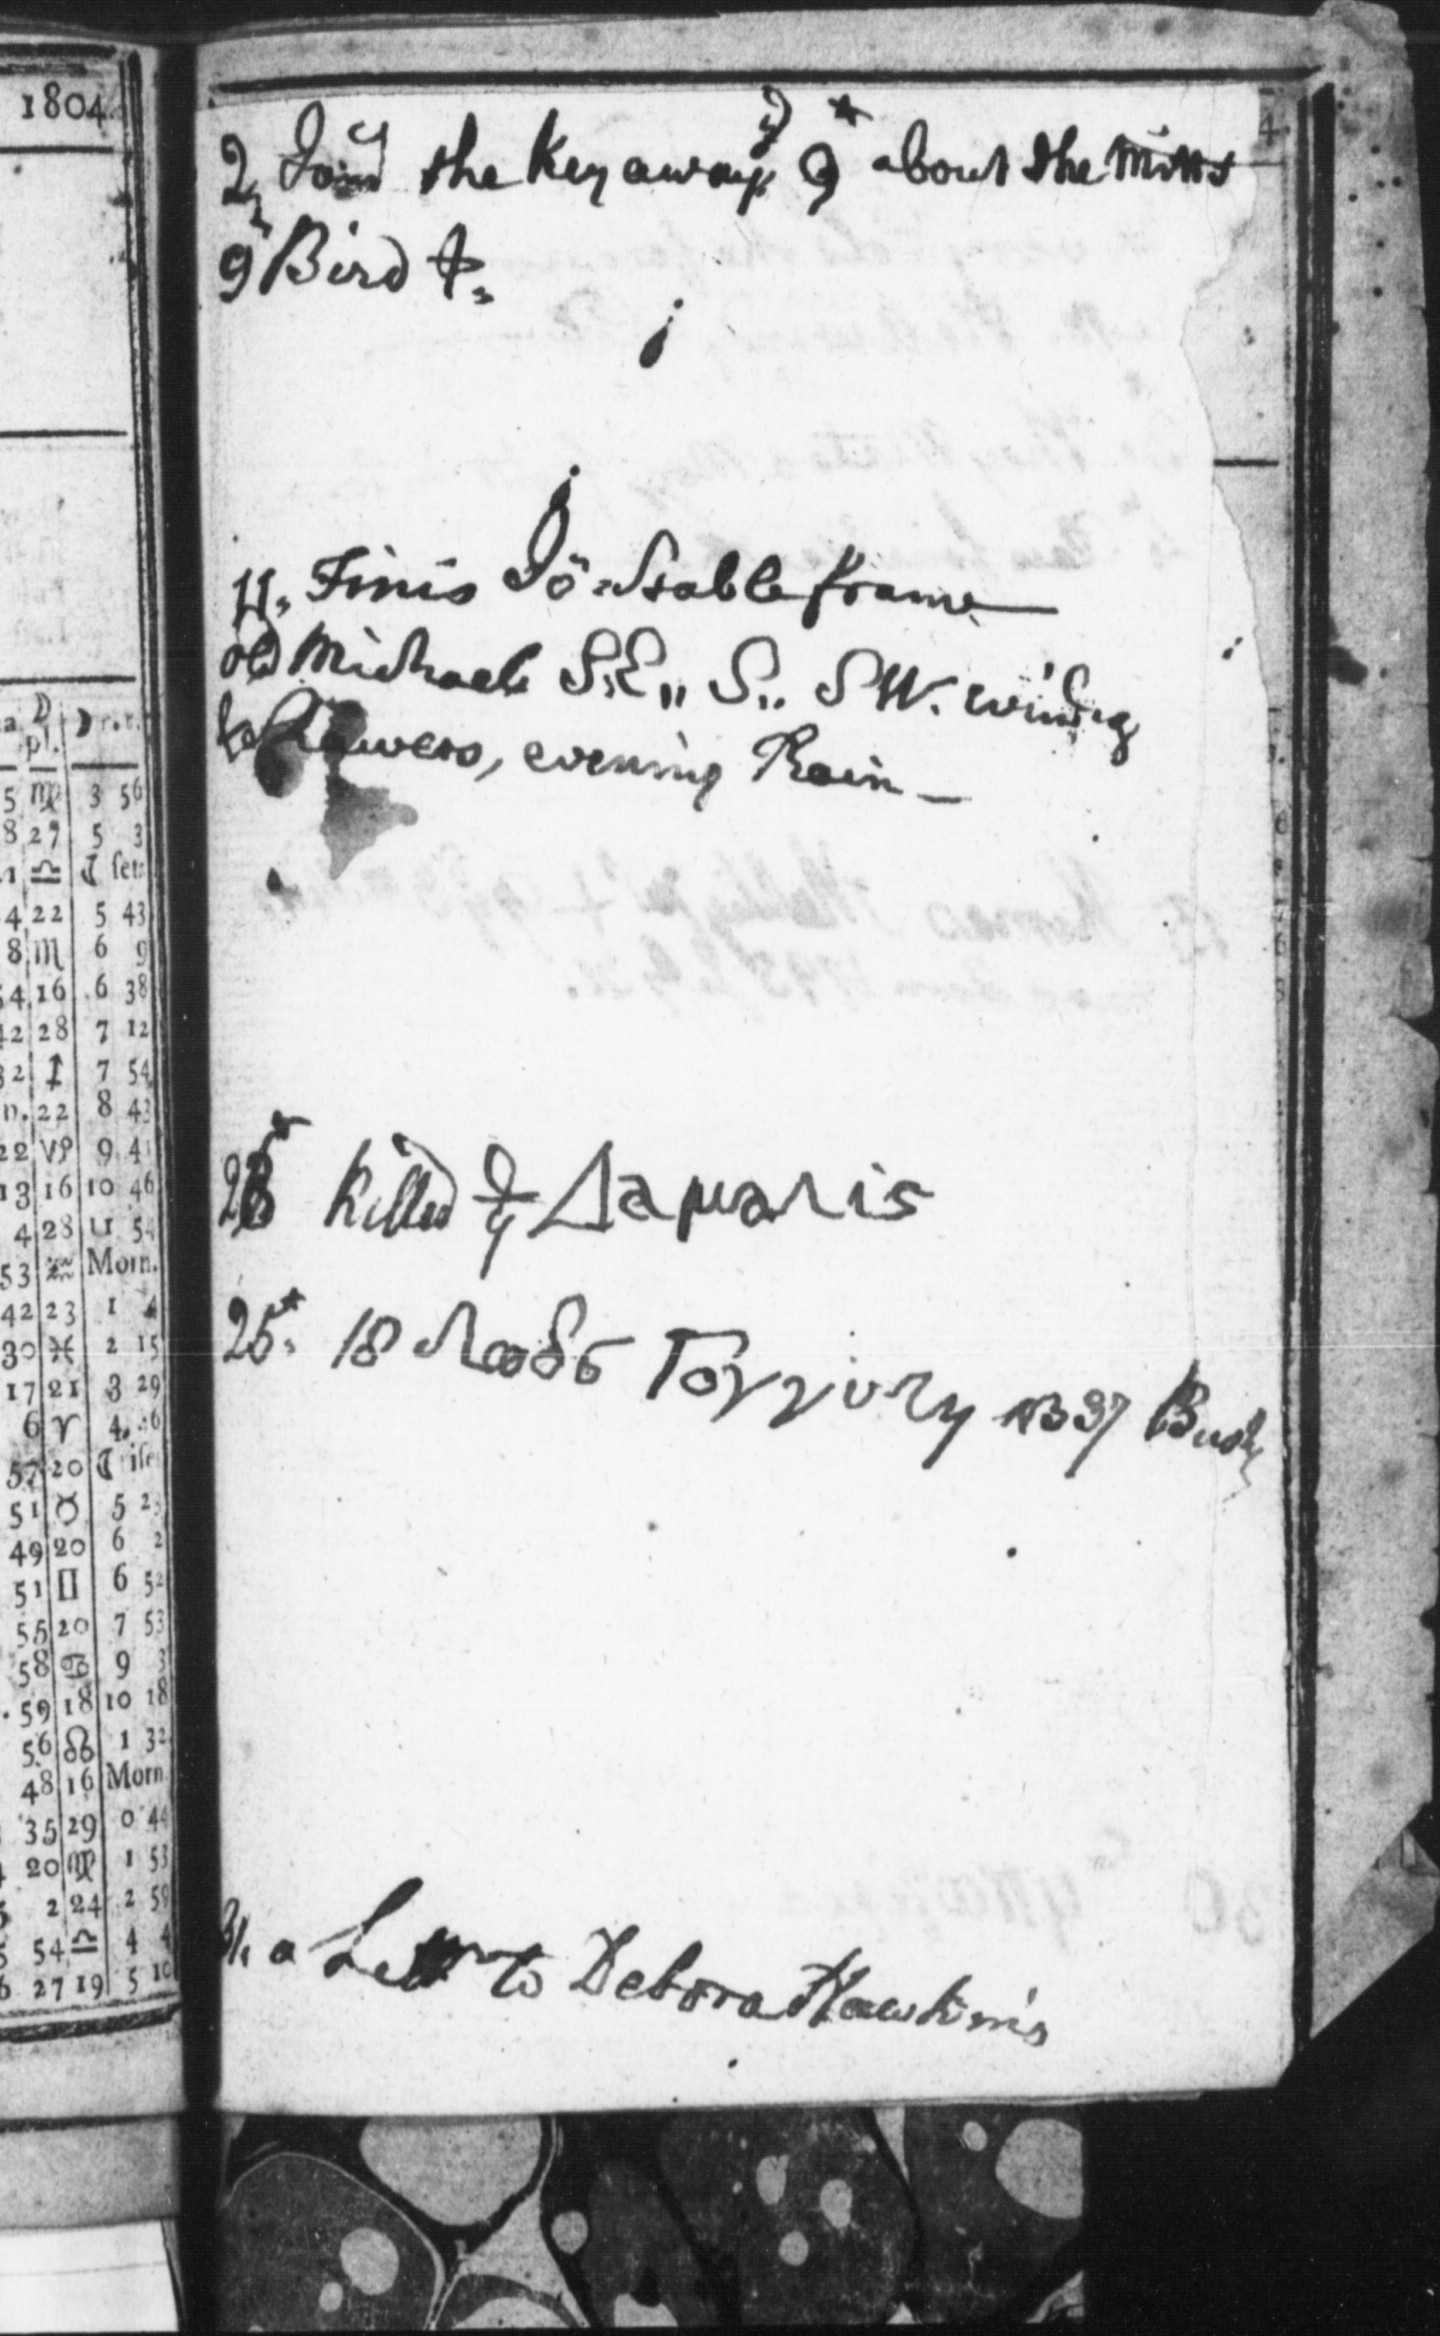 1804
a D pl. D r. s.
5 ♍ 3 56
8 27 5 3
1 ♎ ☾ sets
4 22 5 43
8 ♏ 6 9
54 16 6 38
42 28 7 12
32 ♐ 7 54
n. 22 8 43
22 ♑ 9 4
13 16 10 46
4 28 11 54
53 ♒ Morn.
42 23 1 4
30 ♓ 2 15
17 21 3 29
6 ♈ 4 46
57 20 ☾ rise
51 ♉ 5 2
49 20 6 2
51 ♊ 6 52
55 20 7 53
58 ♋ 9 3
59 18 10 18
56 ♌ 1 32
48 16 Morn
35 29 0 44
20 ♍ 1 53
2 24 2 59
54 ♎ 4 4
27 19 5 10
2 the Key away about the
9 Bird &
11. Finis Jo Stable frame
old Michaels S.E,, S,, SW. wind
Showers, evening Rain —
Killed Δαμαλις
25. 18 Bush
31. a Letter to Debora Hawkins